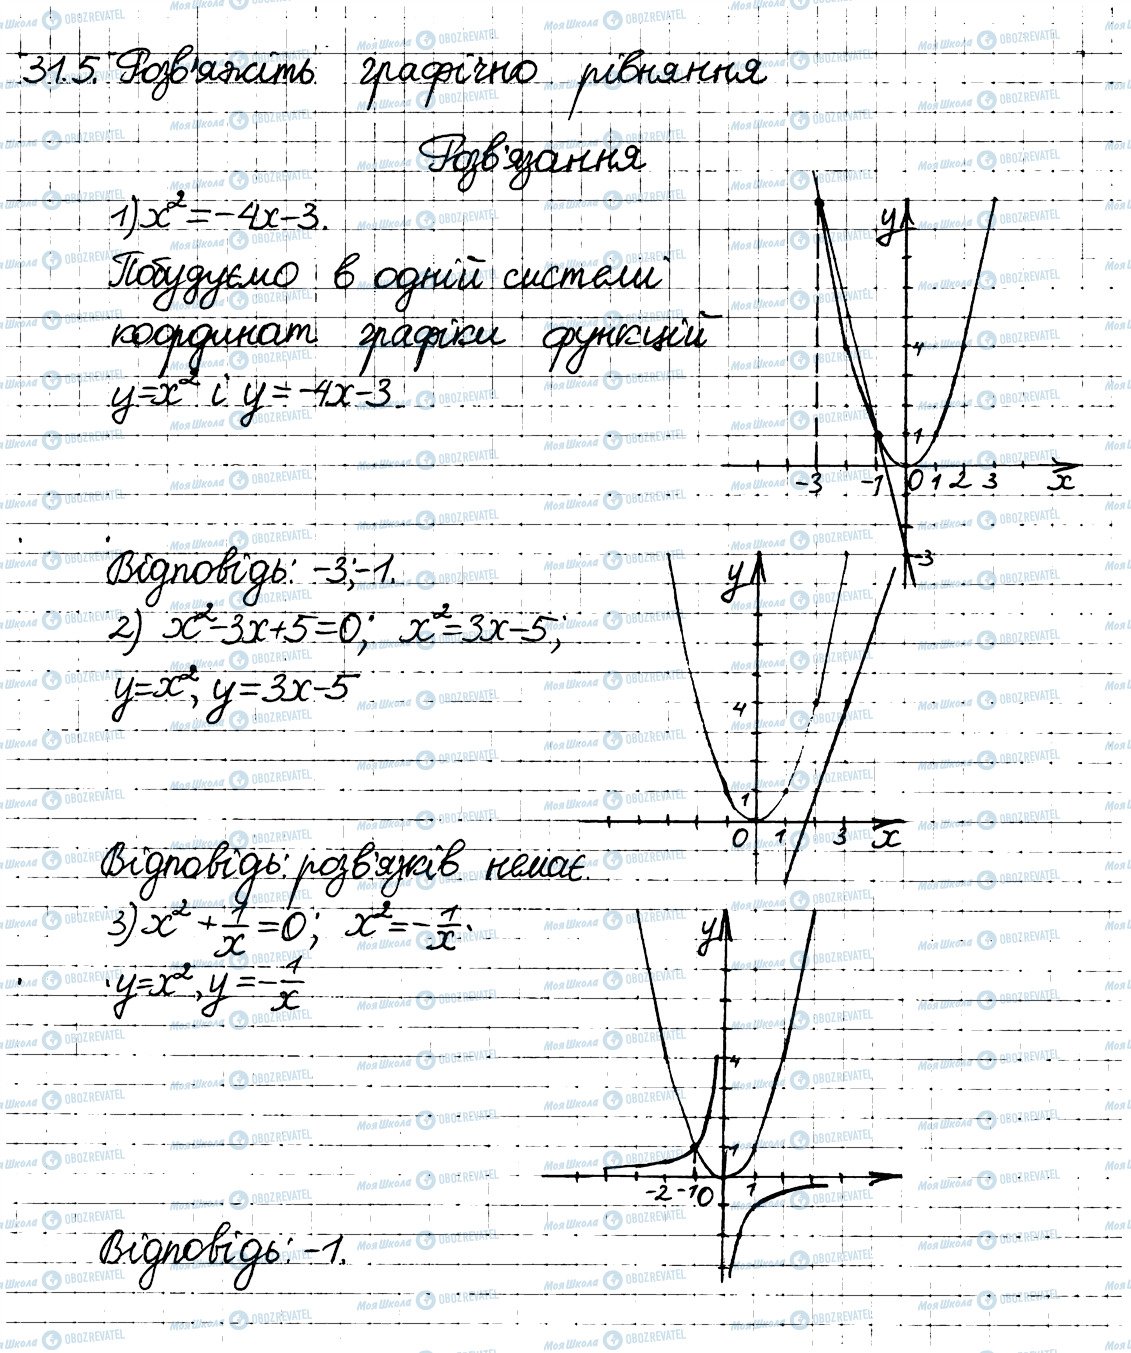 31.5. Розв'яжіть графічно рівняння
Розв'язання
1) x² = -4x-3.
Побудуємо в одній системі
координат графіки функцій
y=x² і y=-4x-3.
y
4
1
-3 -1 0 1 2 3 x
-3
Відповідь: -3; -1.
2) x²-3x+5=0; x²=3x-5;
y=x², y=3x-5
y
4
1
0 1 3 x
Відповідь: розв'язків немає.
3) x² + 1/x = 0; x² = -1/x.
y=x², y=-1/x
y
4
1
-2 -1 0 1
Відповідь: -1.
Моя Школа OBOZREVATEL